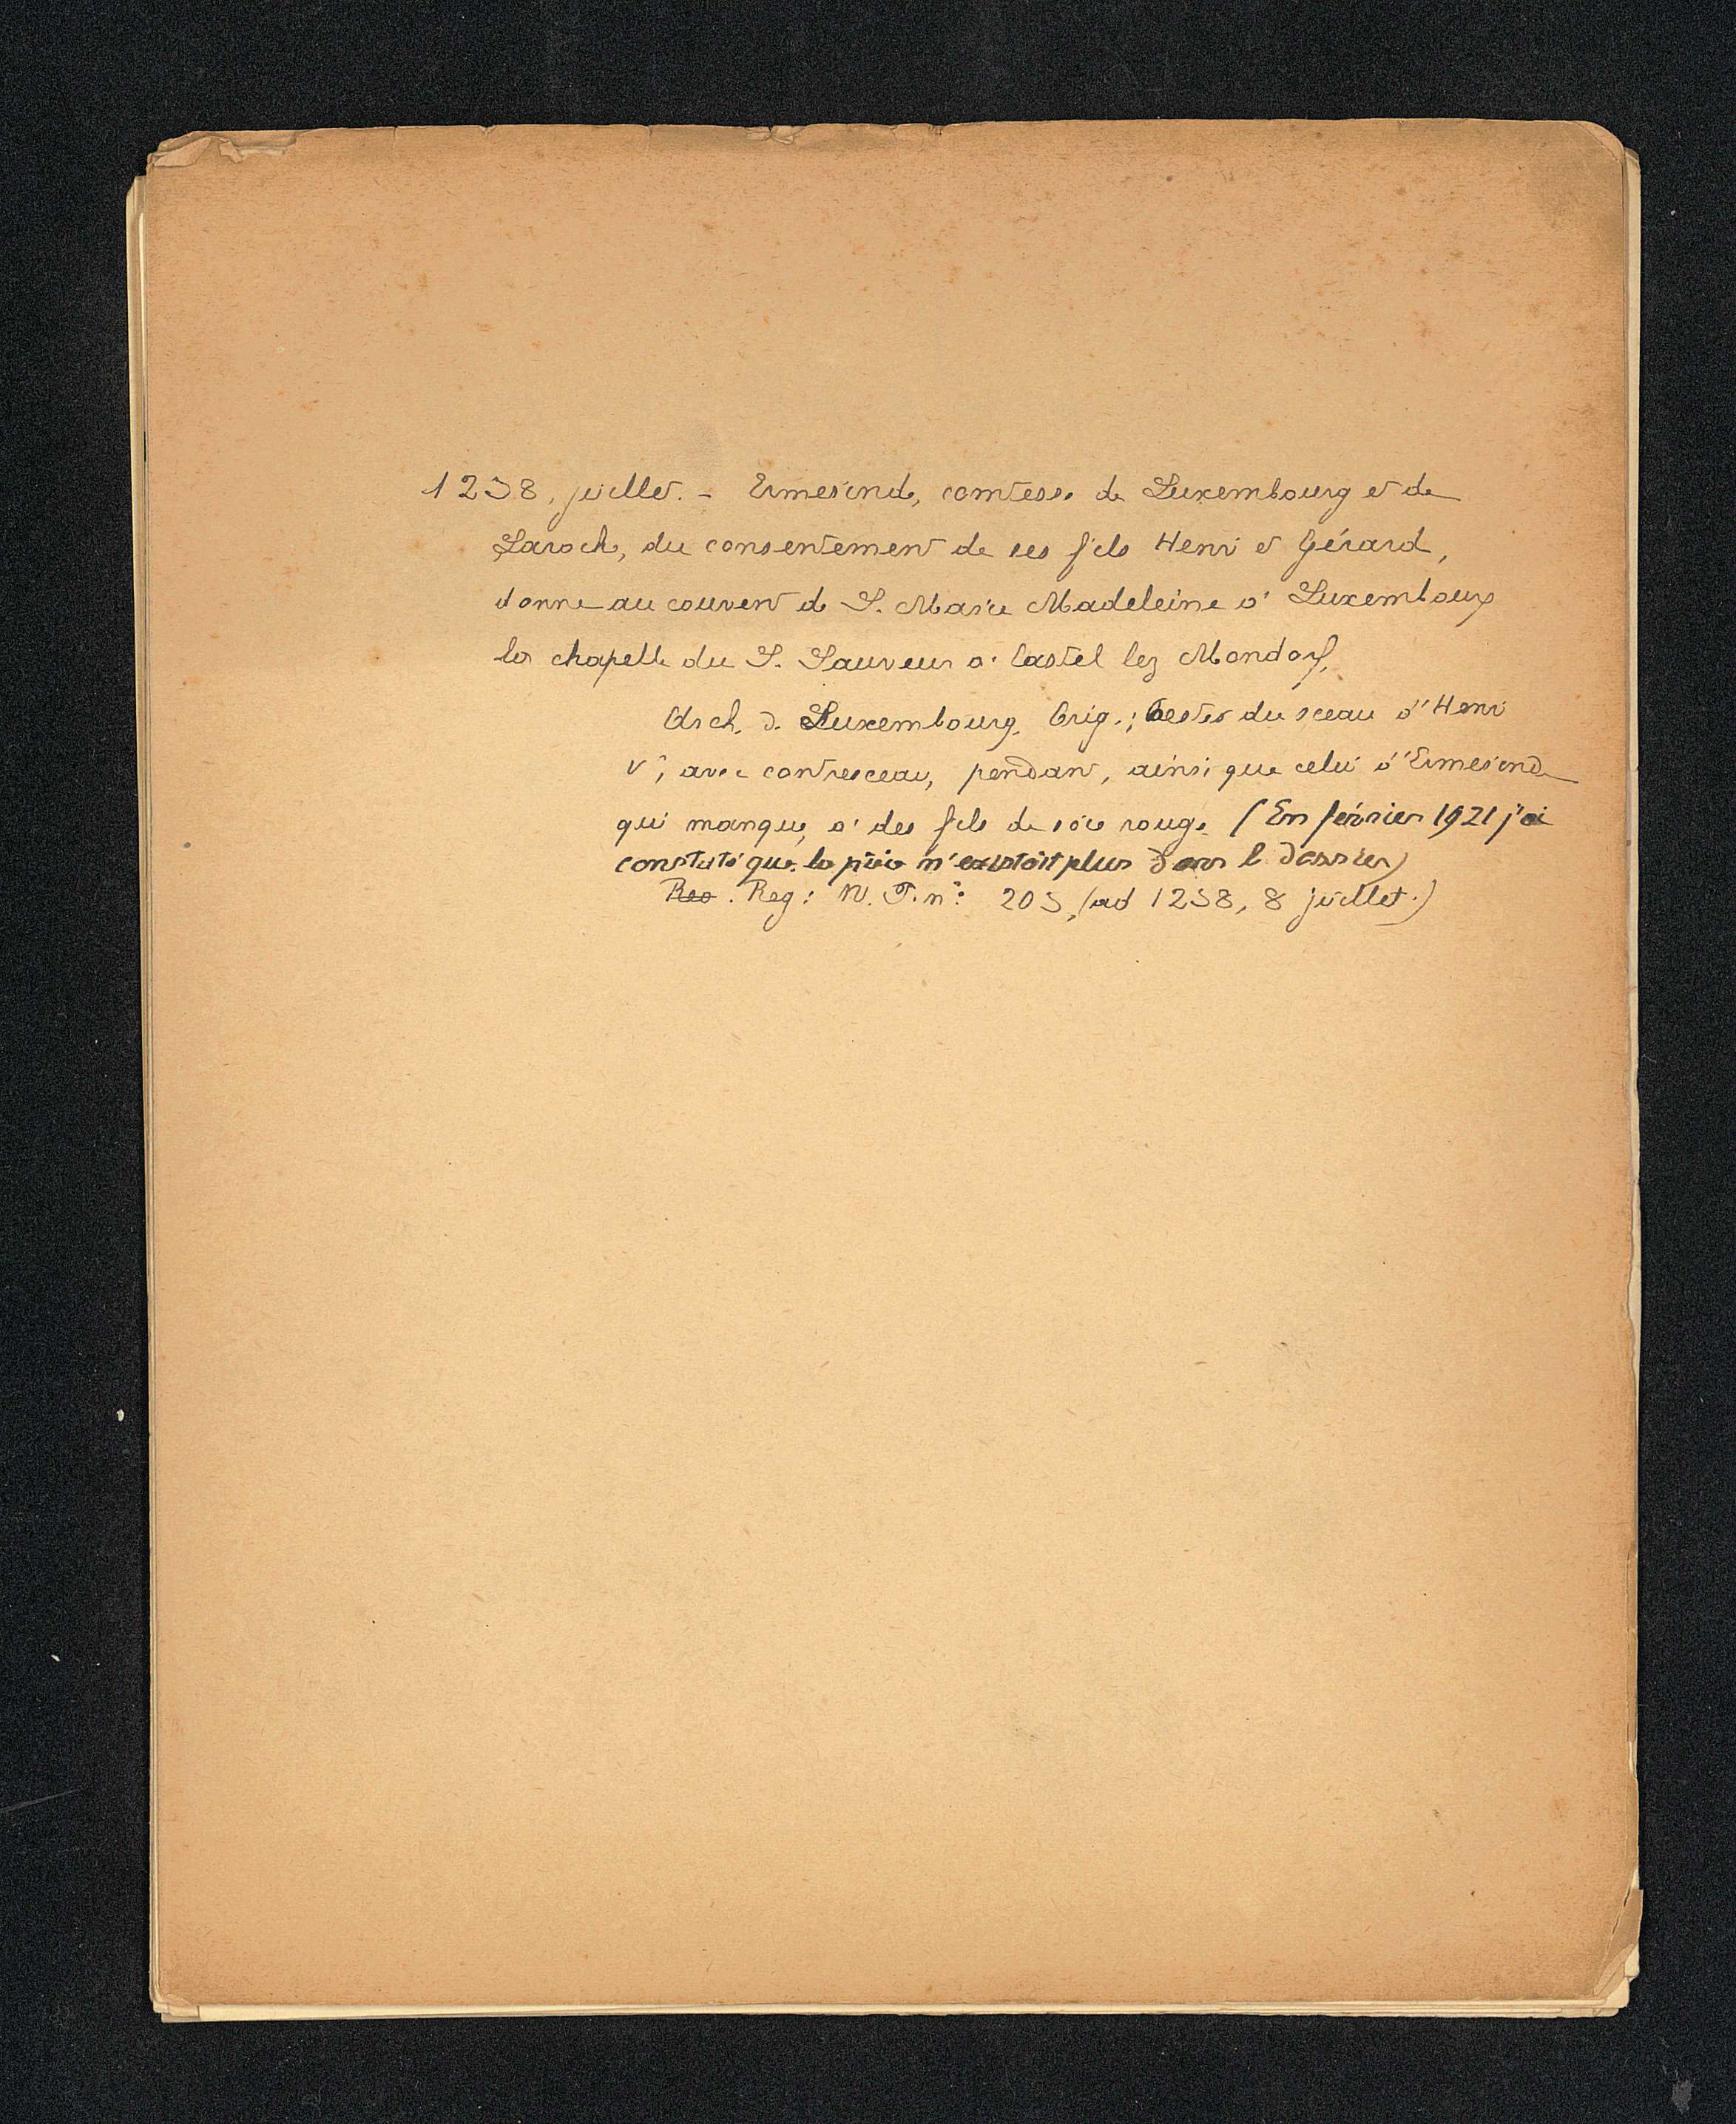 1238, juillet. - Ermesinde, comtesse de Luxembourg et de
Laroche, du consentement de ses fils Henri et Gérard,
donne au couvent de S. Marie Madeleine à Luxembourg
la chapelle du S. Sauveur à Castel lez Mondorf.
Arch. d. Luxembourg. Orig.; restes du sceau d'Henri
V, avec contresceau, pendant, ainsi que celui d'Ermesinde
qui manque, à des fils de soie rouge (En février 1921 j'ai
constaté que la pièce n'existait plus dans le dossier)
Reg: W. P. n°: 203, (ad 1238, 8 juillet.)